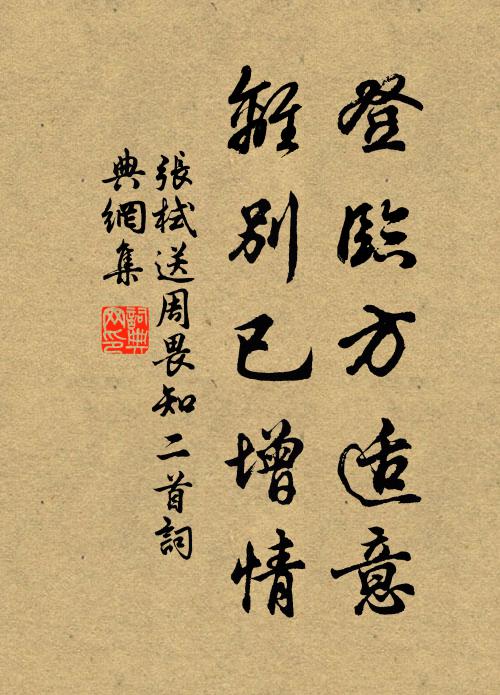 登臨方适意
離別已增情
張栻送周畏知二首詞
典網集
詞典
网印